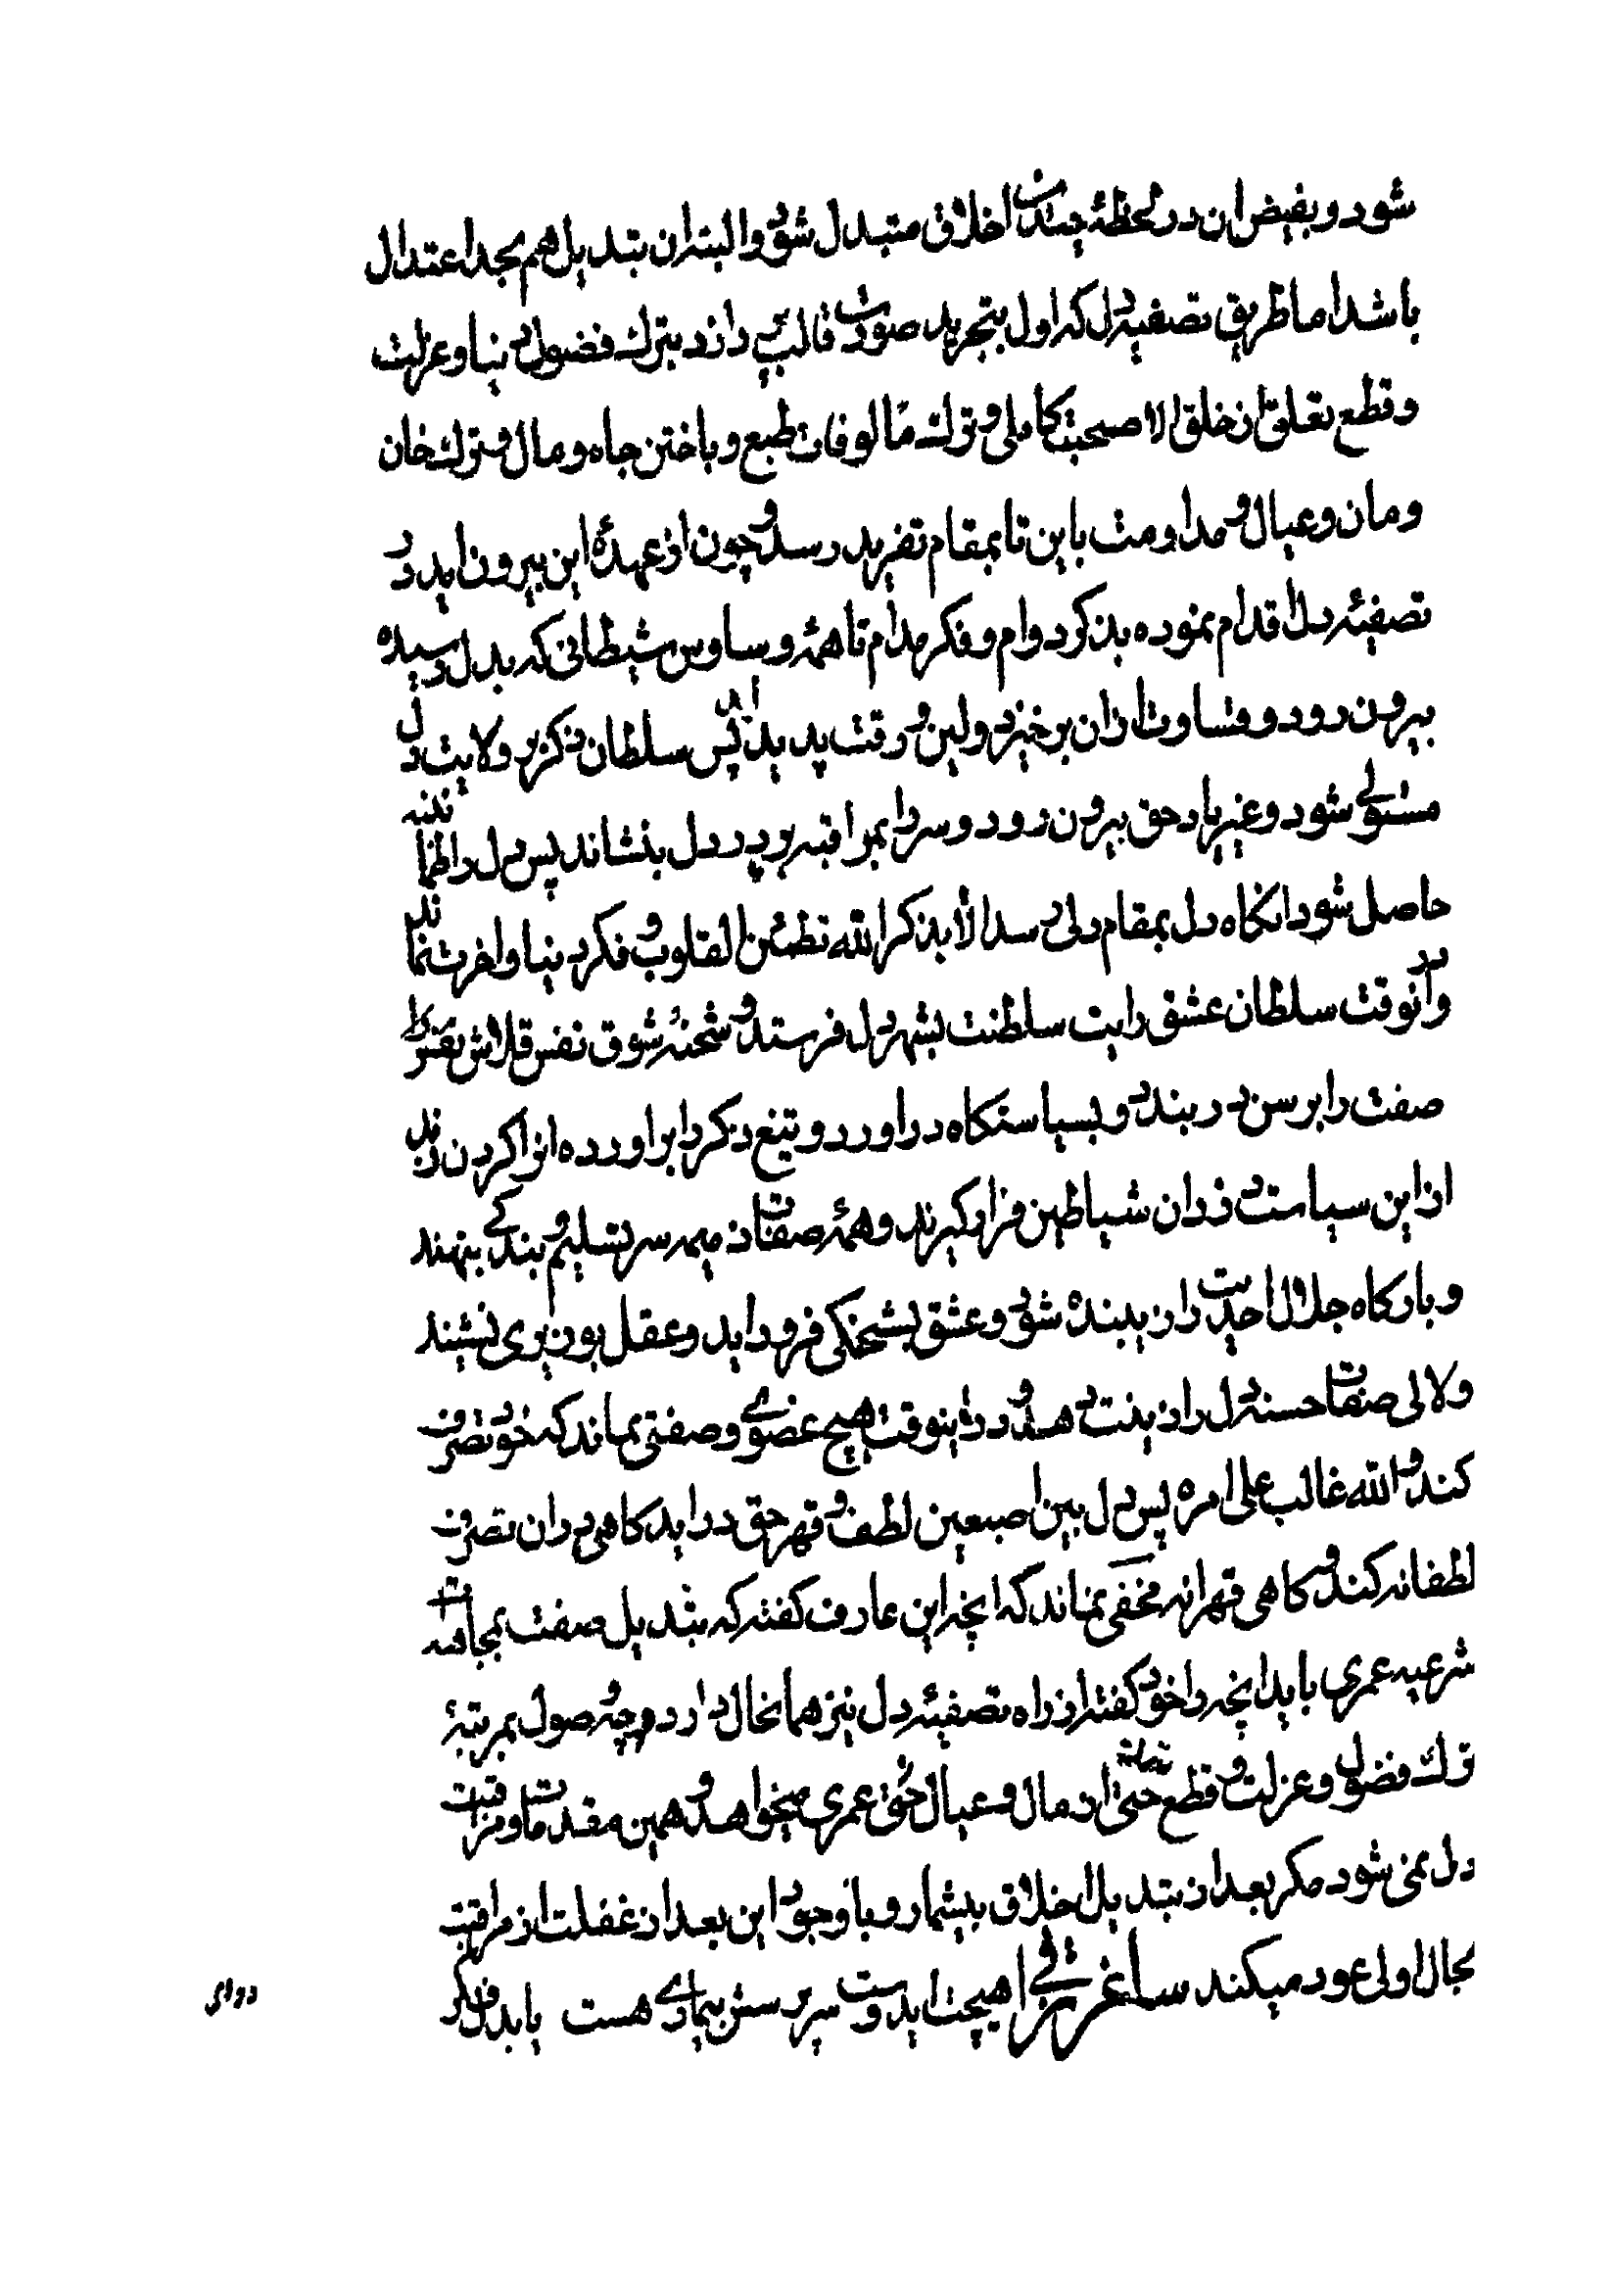 شود و بفیض ان در لحظهٔ چندان اخلاق متبدل شود و البته ان تبدیل هم بحد اعتدال
باشد اما طریق تصفیه دل که اول بتجرید صورت قالب پردازد بترک فضول دنیا و عزلت
و قطع تعلق از خلق الا صحبت کاملی و ترک مألوفات طبع و باختن جاه و مال و ترک خان
و مان و عیال و مداومت باین تا بمقام تفرید رسد و چون از عهدهٔ این بیرون اید در
تصفیهٔ دل اقدام نموده بذکر دوام و فکر مدام تا همهٔ وساوس شیطانی که بدل رسیده
بیرون رود و قساوت ازان برخیزد و لین و رقت پدید اید پس سلطان ذکر بر ولایت دل
مستولی شود و غیر یاد حق بیرون رود و سر را بمراقبه بر در دل بنشاند پس دل را طمانینه
حاصل شود انکاه دل بمقام دلی رسد الا بذکر الله تطمئن القلوب و فکر دنیا و اخرت نماند
و در آنوقت سلطان عشق رایت سلطنت بشهر دل فرستد و شحنهٔ شوق نفس قلاش
صفت را برسن درد بندد و بسیاستکاه دراورد و تیغ ذکر را براورده انرا کردن زند
از این سیاست دزدان شیاطین فرار کیرند و همهٔ صفات ذمیمه سر تسلیم و بندکی بنهند
و بارکاه جلال احدیت را زیبنده شود و عشق بشحنکی فرود اید و عقل بوزیری نشیند
و لالی صفات حسنه دل را زینت دهد و در اینوقت هیچ عضوی و صفتی نماند که خود تصرف
کند و الله غالب علی امره پس دل بین اصبعین لطف و قهر حق دراید کاهی دران تصرف
لطفانه کند و کاهی قهرانه مخفی نماند که انچه این عارف کفته که تبدیل صفت بمجاهده
شرعیه عمری باید انچه را خود کفته از راه تصفیهٔ دل نیز همانحال دارد و چه حصول بمرتبهٔ
ترک فضول و عزلت و قطع تعلق حتی از مال و عیال خود عمری میخواهد و همین مقدمات و مراقبت
دل نمی شود مکر بعد از تبدیل اخلاق بیشمار و با وجود این بعد از غفلت از مراقبت
بحال اولی عود میکند ساغر هیچت ایدوست سر پرسش بیماری هست یا بدل فکر
دوای